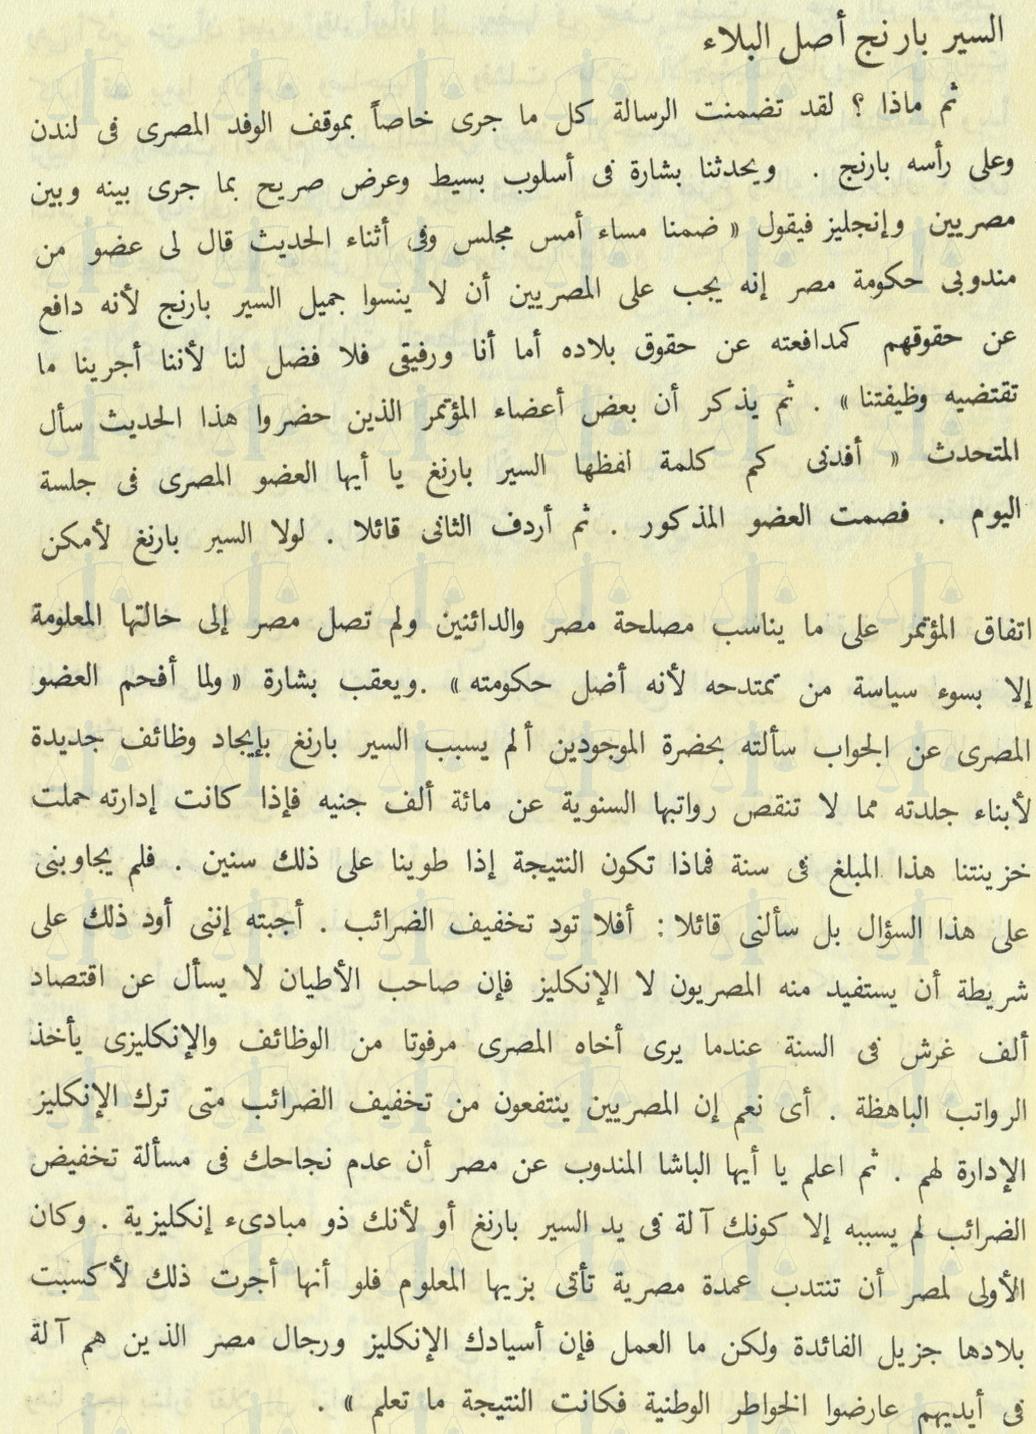 السير بارنج أصل البلاء
ثم ماذا ؟ لقد تضمنت الرسالة كل ما جرى خاصاً بموقف الوفد المصرى فى لندن
وعلى رأسه بارنج . ويحدثنا بشارة فى أسلوب بسيط وعرض صريح بما جرى بينه وبين
مصريين وإنجليز فيقول « ضمنا مساء أمس مجلس وفى أثناء الحديث قال لى عضو من
مندوبى حكومة مصر إنه يجب على المصريين أن لا ينسوا جميل السير بارنج لأنه دافع
عن حقوقهم كمدافعته عن حقوق بلاده أما أنا ورفيقى فلا فضل لنا لأننا أجرينا ما
تقتضيه وظيفتنا » . ثم يذكر أن بعض أعضاء المؤتمر الذين حضروا هذا الحديث سأل
المتحدث « أفدنى كم كلمة لفظها السير بارنغ يا أيها العضو المصرى فى جلسة
اليوم . فصمت العضو المذكور . ثم أردف الثانى قائلا . لولا السير بارنغ لأمكن
اتفاق المؤتمر على ما يناسب مصلحة مصر والدائنين ولم تصل مصر إلى حالتها المعلومة
إلا بسوء سياسة من تمتدحه لأنه أضل حكومته » .ويعقب بشارة « ولما أفحم العضو
المصرى عن الجواب سألته بحضرة الموجودين ألم يسبب السير بارنغ بإيجاد وظائف جديدة
لأبناء جلدته مما لا تنقص رواتبها السنوية عن مائة ألف جنيه فإذا كانت إدارته حملت
خزينتنا هذا المبلغ فى سنة فماذا تكون النتيجة إذا طوينا على ذلك سنين . فلم يجاوبنى
على هذا السؤال بل سألنى قائلا : أفلا تود تخفيف الضرائب . أجبته إننى أود ذلك على
شريطة أن يستفيد منه المصريون لا الإنكليز فإن صاحب الأطيان لا يسأل عن اقتصاد
ألف غرش فى السنة عندما يرى أخاه المصرى مرفوتا من الوظائف والإنكليزى يأخذ
الرواتب الباهظة . أى نعم إن المصريين ينتفعون من تخفيف الضرائب متى ترك الإنكليز
الإدارة لهم . ثم اعلم يا أيها الباشا المندوب عن مصر أن عدم نجاحك فى مسألة تخفيض
الضرائب لم يسببه إلا كونك آلة فى يد السير بارنغ أو لأنك ذو مبادىء إنكليزية . وكان
الأولى لمصر أن تنتدب عمدة مصرية تأتى بزيها المعلوم فلو أنها أجرت ذلك لأكسبت
بلادها جزيل الفائدة ولكن ما العمل فإن أسيادك الإنكليز ورجال مصر الذين هم آلة
فى أيديهم عارضوا الخواطر الوطنية فكانت النتيجة ما تعلم » .